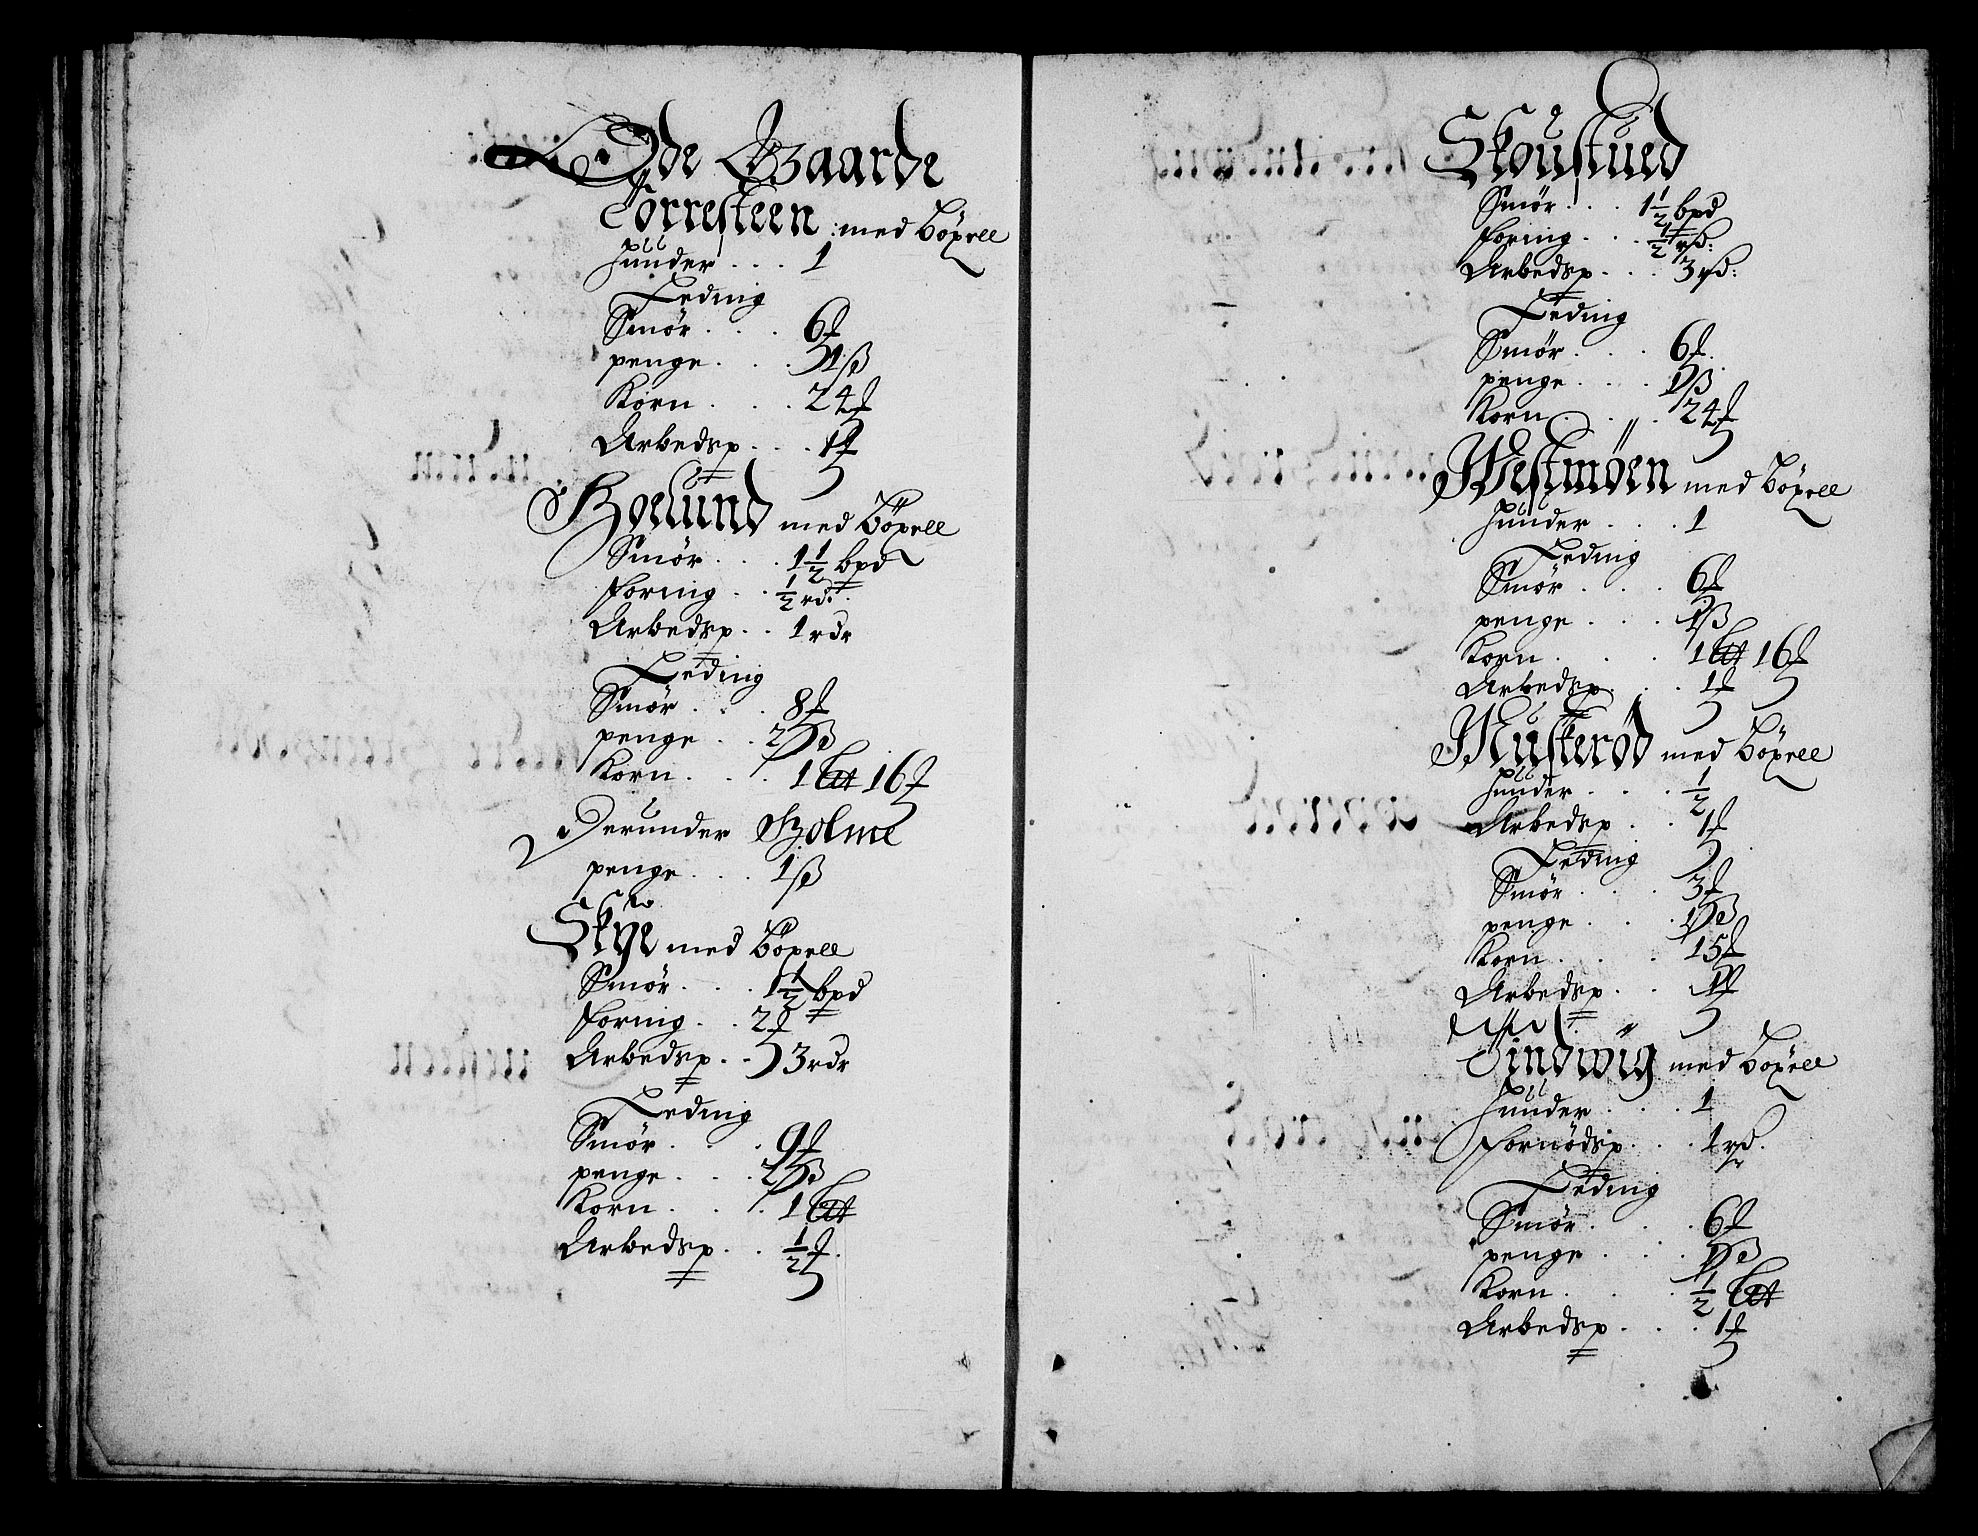 Øde Gaarde
Torresteen med böxell
huuder . . . 1
Leding
Smør . . . 6
penge . . . 1 ß
Korn . . . 24
Arbedsp . . . 1
Hoelund med böxell
Smør . . . 1½ bpd
foring . . ½ rd:
Arbedsp . . 1 rdr
Leding
Smør . . . 8
penge . . 2 ß
Korn . . . 1 Let 16
Derunder Holme
penge . . . 1 ß
Skÿe med böxell
Smør . . . 1½ bpd
foring . . 2
Arbedsp . . 3 rdr
Leding
Smør . . . 9
penge . . . 2 ß
Korn . . . 1 Let
Arbedsp . . ½
Skoustued
Smør . . . 1½ bpd
foring . . . ½ rd:
Arbedsp . . . 3 rd:
Leding
Smør . . . 6
penge . . . 1 ß
Korn . . . 24
Westmöen med böxell
huuder . . . 1
Leding
Smør . . . 6
penge . . . 1 ß
Korn . . . 1 Let 16
Arbedsp . . . 1
Musterød med böxell
huuder . . . ½
Arbedsp . . 1
Leding
Smør . . . 3
penge . . . 1 ß
Korn . . . 15
Arbedsp . . 1
Vindwig med böxell
huuder . . . 1
fornödsp . . . 1 rd.
Leding
Smør . . . 6
penge . . . 1 ß
Korn . . . ½ Let
Arbedsp . . . 1